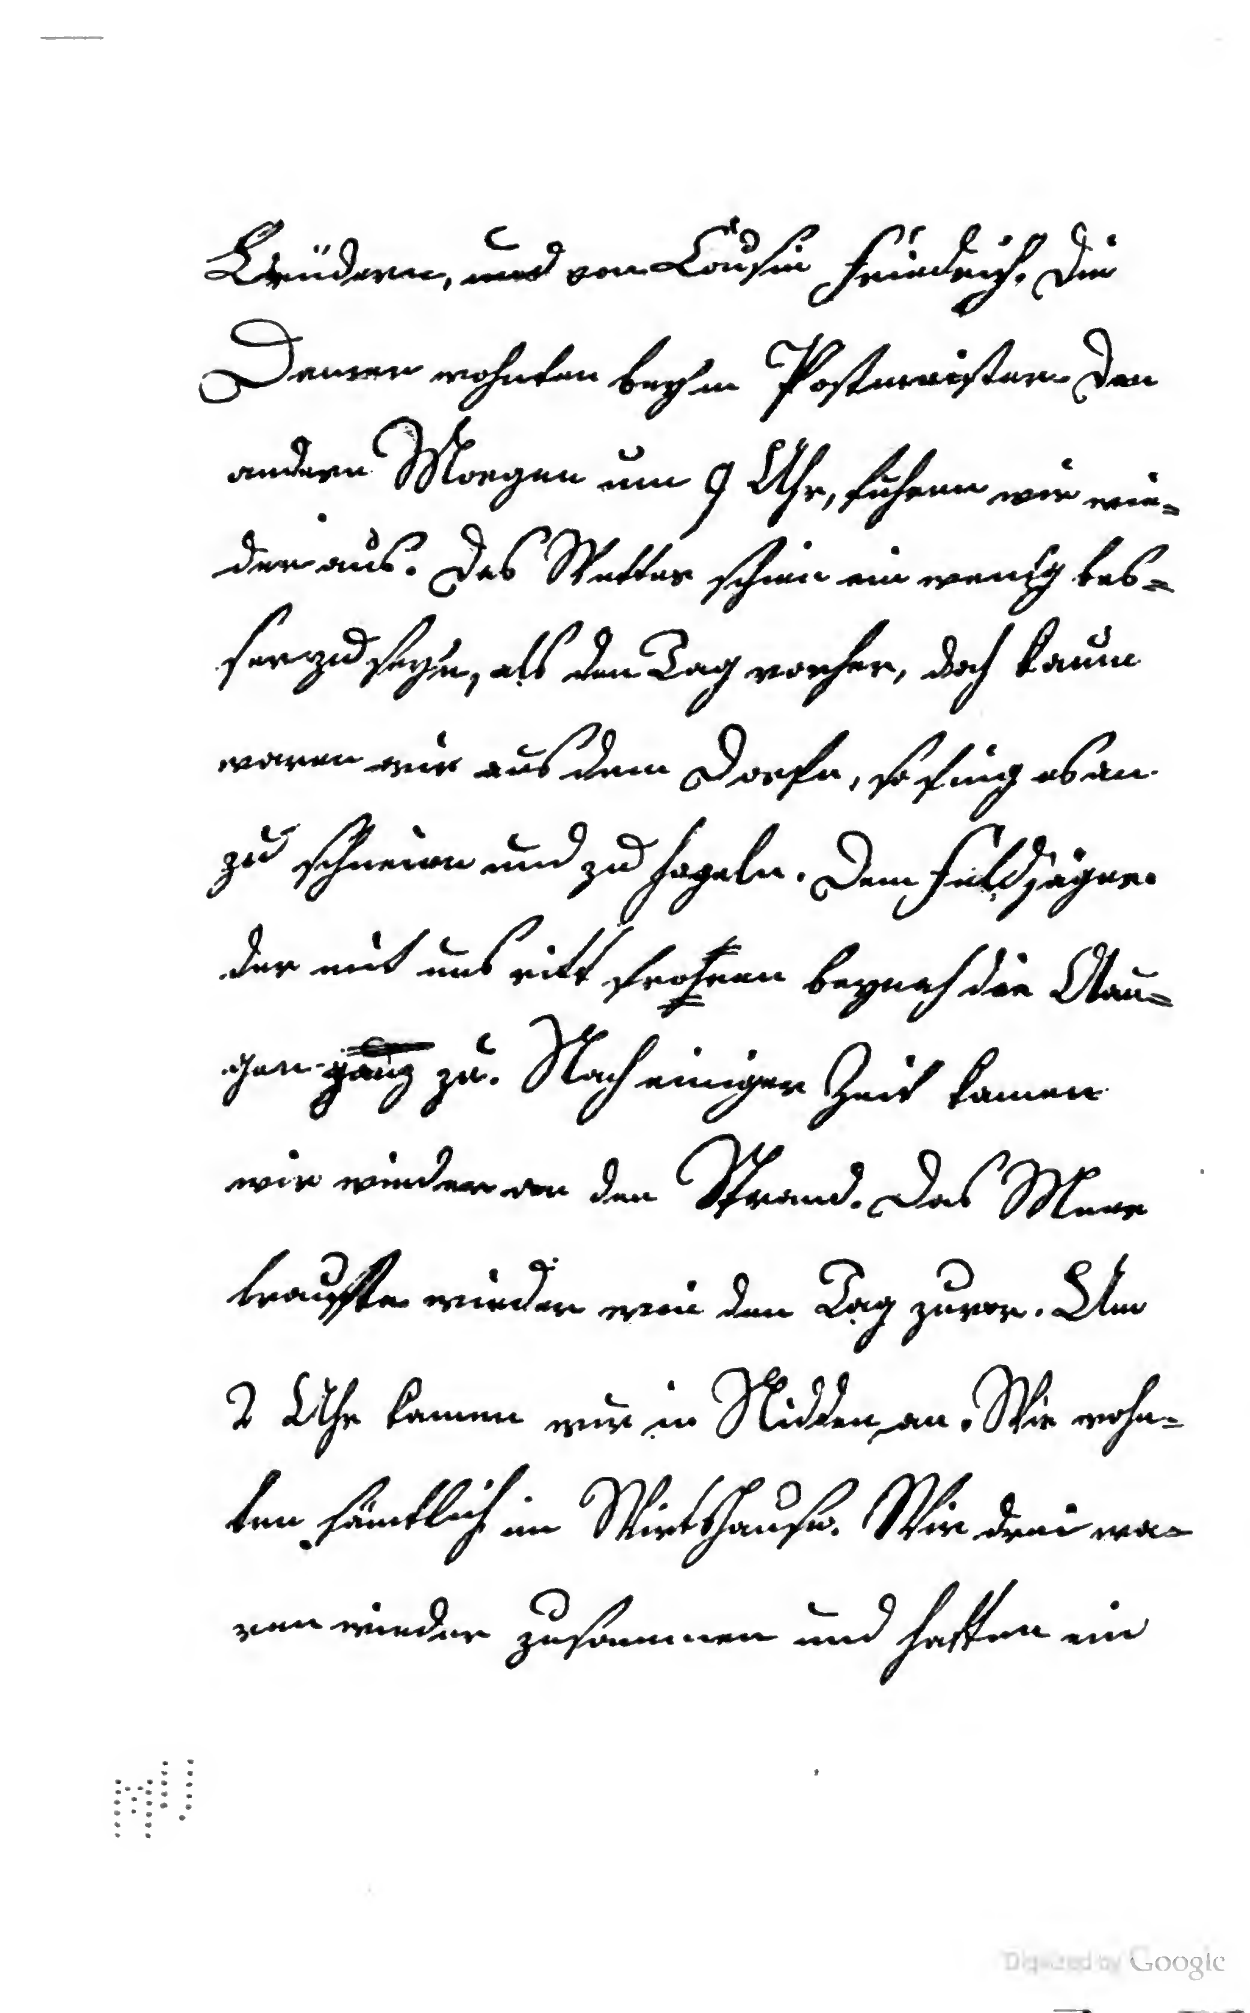 Brüdern, und von Cousin Friedrich. Die
Damen wohnten beym Postmeister. Den
andern Morgen um 9 Uhr, fuhren wir wie-
der aus. Das Wetter schien ein wenig bes-
ser zu seyn, als den Tag vorher, doch kaum
waren wir aus dem Dorfe, so fing es an
zu schneien und zu hageln. Dem Feldjäger
der mit uns ritt froren beynah die Au-
gen ganz zu. Nach einiger Zeit kamen
wir wieder an den Strand. Das Meer
brauste wieder wie den Tag zuvor. Um
2 Uhr kamen wir in Nidden an. Wir wohn-
ten sämtlich im Wirtshause. Wir drei wa-
ren wieder zusammen und hatten ein
Digitized by Google